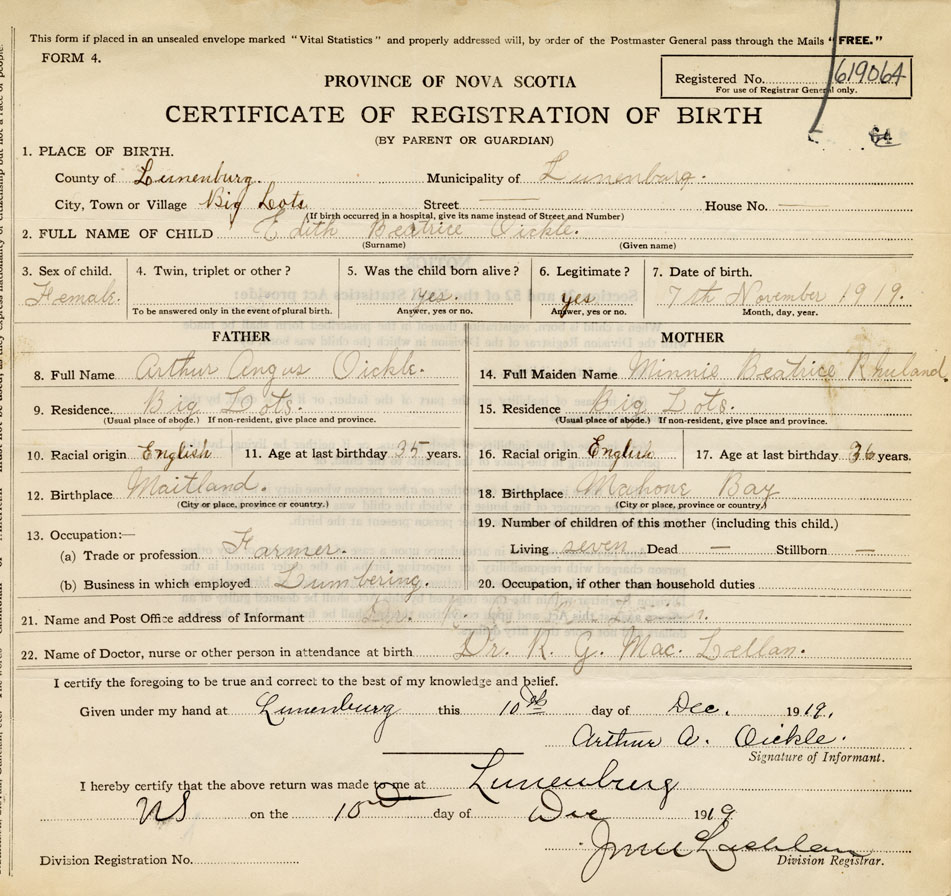 This form if placed in an unsealed envelope marked "Vital Statistics" and properly addressed will, by order of the Postmaster General pass through the Mails "FREE."
FORM 4.
PROVINCE OF NOVA SCOTIA
Registered No. 619064
For use of Registrar General only.
CERTIFICATE OF REGISTRATION OF BIRTH
(BY PARENT OR GUARDIAN)
64
1. PLACE OF BIRTH.
County of Lunenburg. Municipality of Lunenburg.
City, Town or Village Big Lots Street — House No. —
(If birth occurred in a hospital, give its name instead of Street and Number)
2. FULL NAME OF CHILD Edith Beatrice Oickle.
(Surname) (Given name)
3. Sex of child. 4. Twin, triplet or other? 5. Was the child born alive? 6. Legitimate? 7. Date of birth.
Female. yes. yes 7th November 1919.
To be answered only in the event of plural birth. Answer, yes or no. Answer, yes or no. Month, day, year.
FATHER MOTHER
8. Full Name Arthur Angus Oickle. 14. Full Maiden Name Minnie Beatrice Rhuland
9. Residence. Big Lots. 15. Residence Big Lots.
(Usual place of abode.) If non-resident, give place and province. (Usual place of abode.) If non-resident, give place and province.
10. Racial origin English 11. Age at last birthday 35 years. 16. Racial origin English 17. Age at last birthday 36 years.
12. Birthplace Maitland. 18. Birthplace Mahone Bay
(City or place, province or country.) (City or place, province or country.)
13. Occupation:— 19. Number of children of this mother (including this child.)
(a) Trade or profession Farmer. Living seven Dead — Stillborn —
(b) Business in which employed Lumbering. 20. Occupation, if other than household duties
21. Name and Post Office address of Informant
22. Name of Doctor, nurse or other person in attendance at birth. Dr. R. G. Mac. Lellan.
I certify the foregoing to be true and correct to the best of my knowledge and belief.
Given under my hand at Lunenburg this 10th day of Dec. 1919.
Arthur A. Oickle.
Signature of Informant.
I hereby certify that the above return was made to me at Lunenburg
NS on the 10 day of Dec 1919
Division Registration No. Division Registrar.